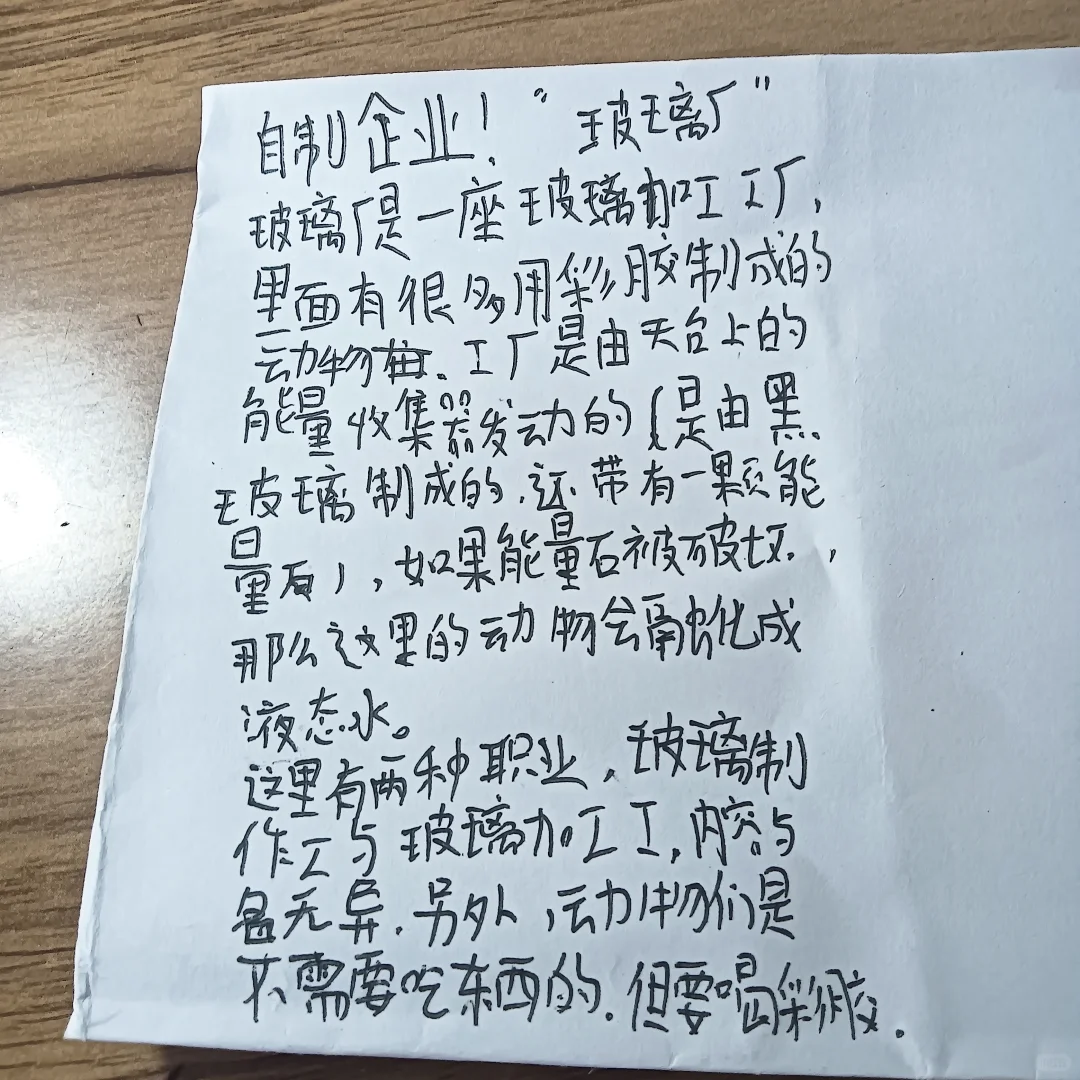 自制企业！“玻璃厂”
玻璃厂是一座玻璃加工工厂，
里面有很多用彩胶制成的
动物柱。工厂是由天台上的
能量收集器发动的（是由黑
玻璃制成的.还带有一颗能
量石），如果能量石被破坏，
那么这里的动物会融化成
液态水。
这里有两种职业，玻璃制
作工与玻璃加工工，内容与
名无异.另外，动物们是
不需要吃东西的.但要喝彩胶.